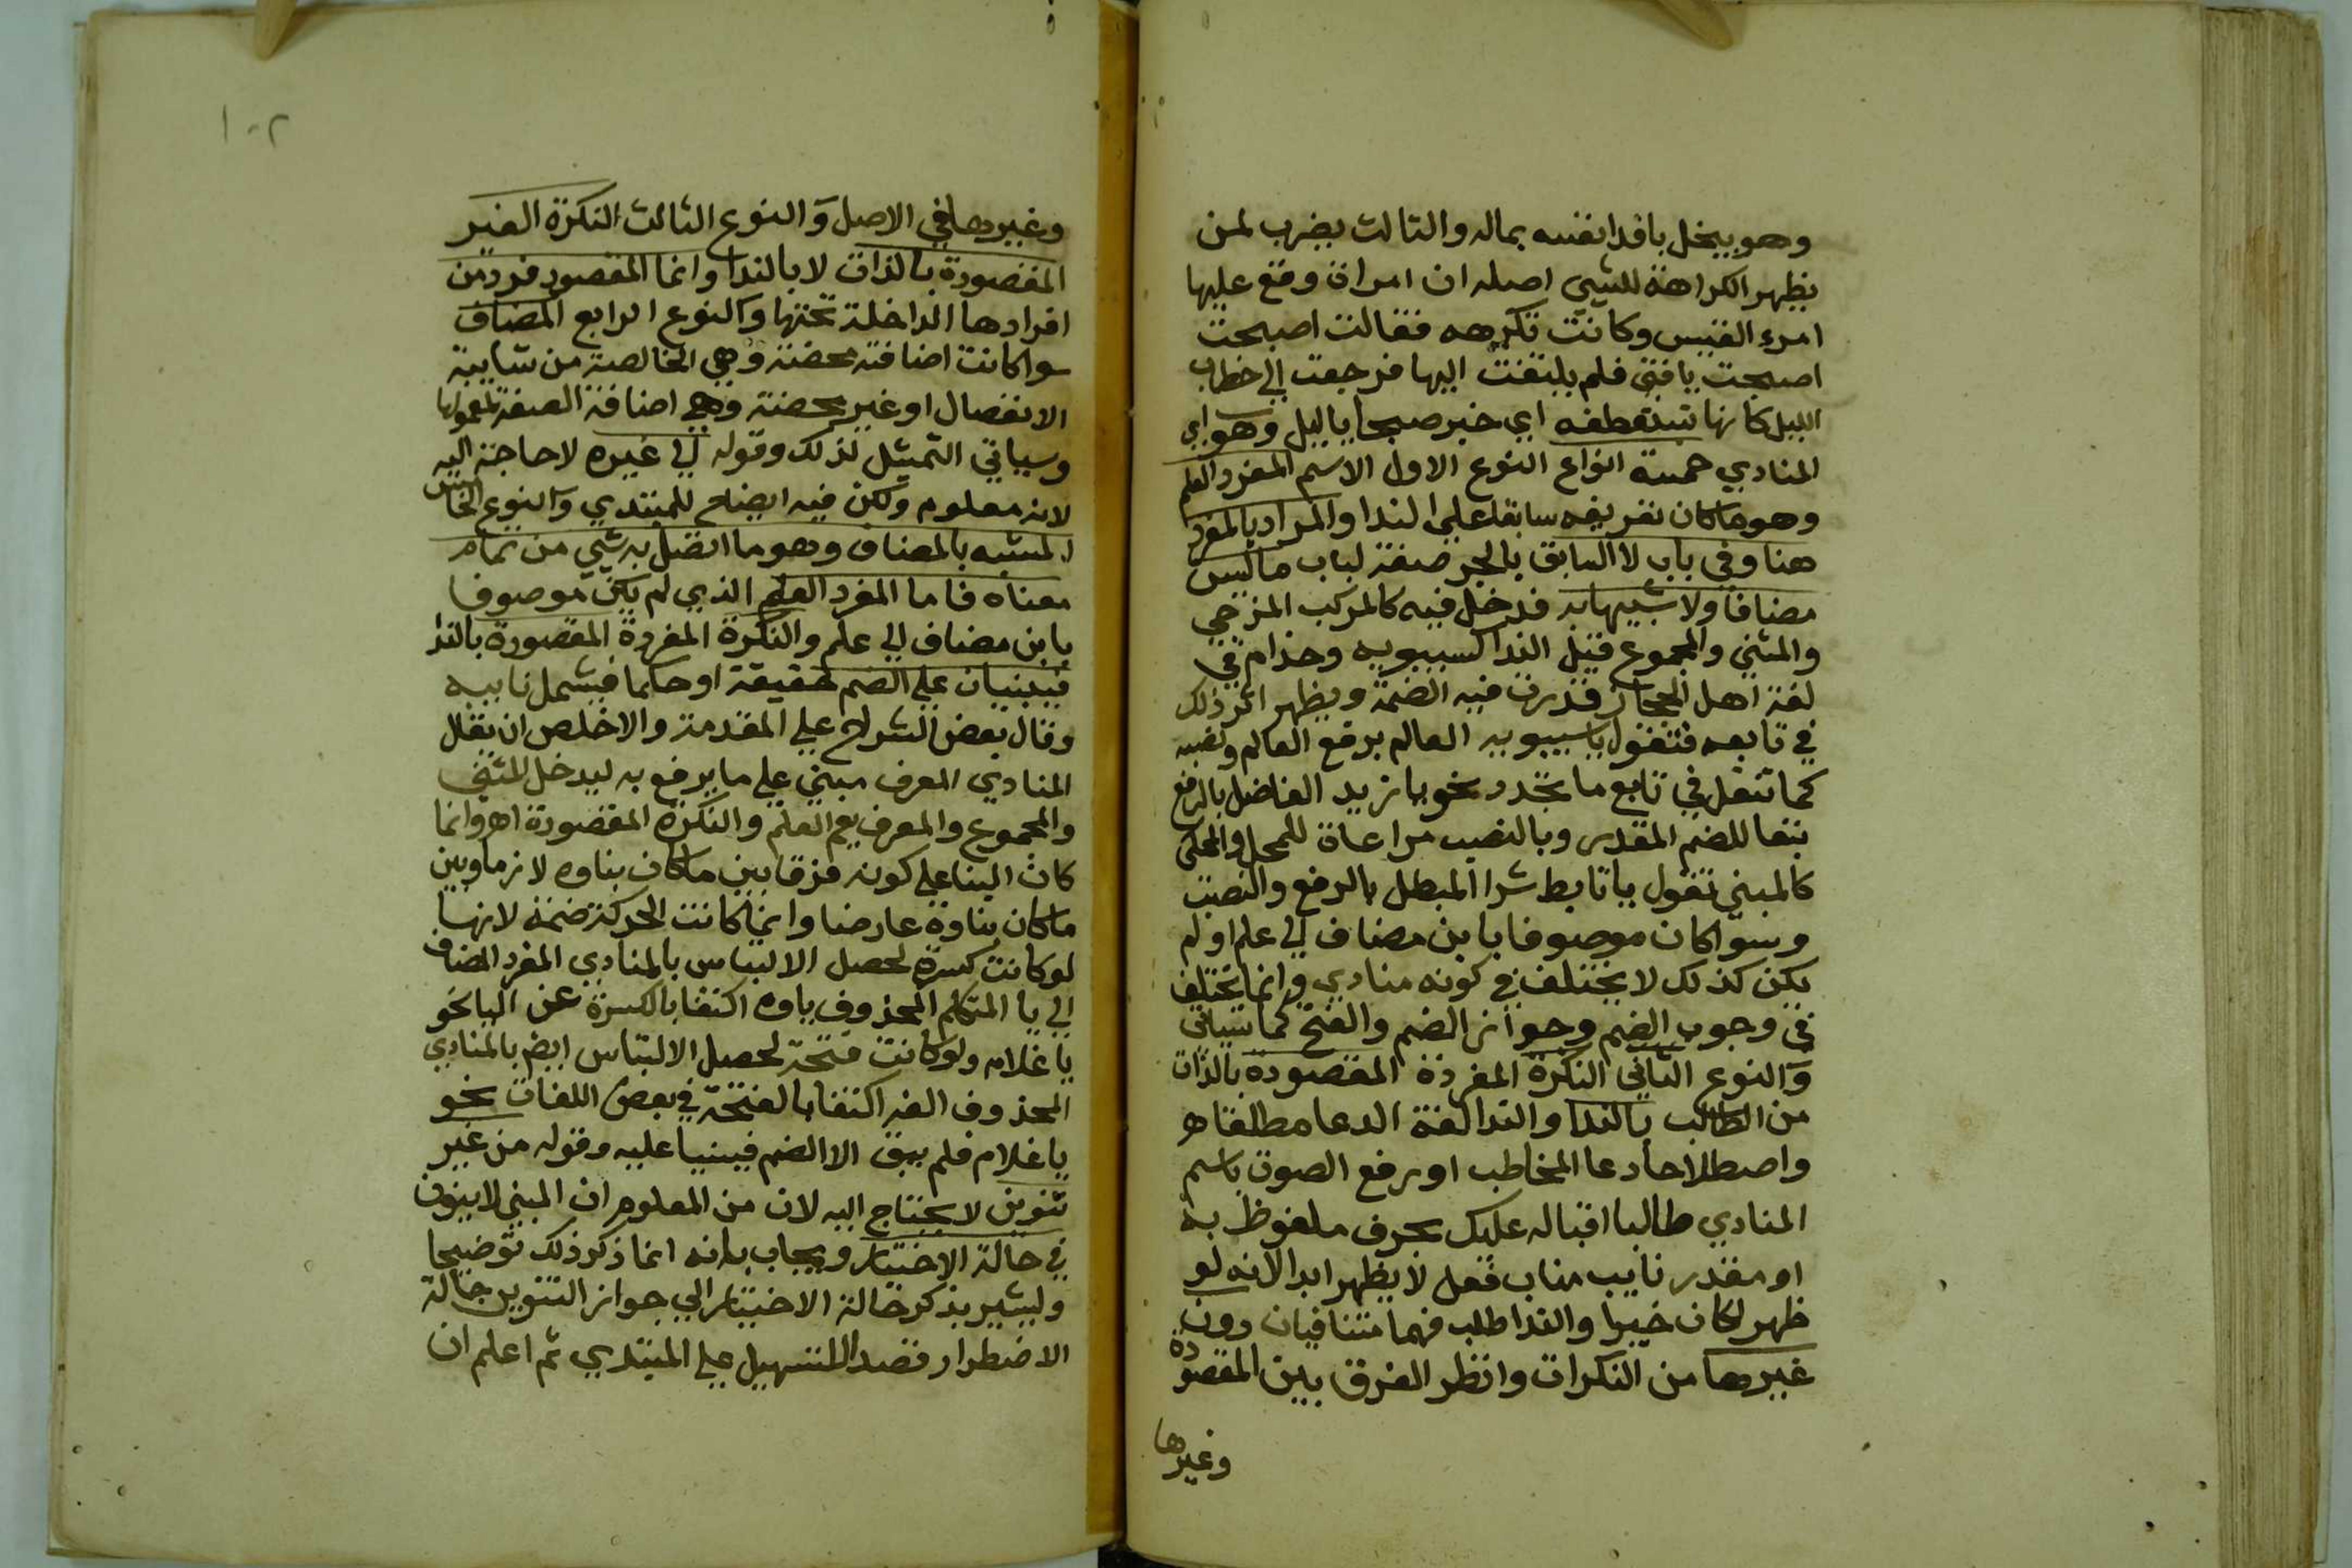 وهو يبخل بافدا نفسه بماله والثالث يضرب لمن
يظهر الكراهة للشي اصله ان امراة وقع عليها
امرء القيس وكانت تكرهه فقالت اصبحت
اصبحت يافتى فلم يلتفت اليها فرجعت الي خطاب
الليل كانها تستعطفه اي خبر صبحا يا ليل وهو اي
المنادي خمسة انواع النوع الاول الاسم المفرد العلم
وهو ما كان تعريفه سابقا علي الندا والمراد بالمفرد
هنا وفي باب لا السابق بالجر صفة لباب ما ليس
مضافا ولا شبيها به فدخل فيه كالمركب المزجي
والمثني والمجموع قبل الندا كسيبويه وحذام في
لغة اهل الحجاز قدرت فيه الضمة ويظهر اثر ذلك
في تابعه فتقول يا سيبويه العالم برفع العالم ونصبه
كما تفعل في تابع ما تجدد نحو يا زيد الفاضل بالرفع
تبعا للضم المقدر وبالنصب مراعاة للمحل والمحكى
كالمبني تقول يا تابط شرا المبطل بالرفع والنصب
وسوا كان موصوفا بابن مضاف الي علم او لم
يكن كذلك لا يختلف في كونه منادي وانما يختلف
في وجوب الضم وجواز الضم والفتح كما سياتي
والنوع الثاني النكرة المفردة المقصودة بالذات
من الطالب بالندا والندا لغة الدعا مطلقا اه
واصطلاحا دعا المخاطب او رفع الصوت باسم
المنادي طالبا اقباله عليك بحرف ملفوظ به
او مقدر نايب مناب فعل لا يظهر ابدا لانه لو
ظهر لكان خبرا والندا طلب فهما متنافيان دون
غيرها من النكرات وانظر الفرق بين المقصودة
وغيرها
١٠٢
وغيرها في الاصل والنوع الثالث النكرة الغير
المقصودة بالذات لا بالندا وانما المقصود فرد من
افرادها الداخلة تحتها والنوع الرابع المضاف
سوا كانت اضافته محضة وهي الخالصة من شايبة
الانفصال او غير محضة وهي اضافة الصفة لمعمولها
وسياتي التمثيل لذلك وقوله الي غيره لا حاجة اليه
لانه معلوم ولكن فيه ايضاح للمبتدي والنوع الخامس
المشبه بالمضاف وهو ما اتصل به شي من تمام
معناه فاما المفرد العلم الذي لم يكن موصوفا
بابن مضاف الي علم والنكرة المفردة المقصودة بالندا
فيبنيان علي الضم حقيقة او حكما فيشمل نايبه
وقال بعض الشراح علي المقدمة والاخلص ان يقال
المنادي المعرف مبني علي ما يرفع به ليدخل المثني
والمجموع والمعرف يعم العلم والنكرة المقصودة اه وانما
كان البنا علي كونه فرقا بين ما كان بناوه لازما وبين
ما كان بناوه عارضا وانما كانت الحركة ضمة لانها
لو كانت كسرة لحصل الالتباس بالمنادي المفرد المضاف
الي يا المتكلم المحذوف ياوه اكتفا بالكسرة عن اليا نحو
يا غلام ولو كانت فتحة لحصل الالتباس ايضم بالمنادي
المحذوف الفه اكتفا بالفتحة في بعض اللغات نحو
يا غلام فلم يبق الا الضم فيبنيا عليه وقوله من غير
تنوين لا يحتاج اليه لان من المعلوم ان المبني لا ينون
في حالة الاختيار ويجاب بانه انما ذكر ذلك توضيحا
وليشير بذكر حالة الاختيار الي جواز التنوين حالة
الاضطرار قصدا للتسهيل علي المبتدي ثم اعلم ان